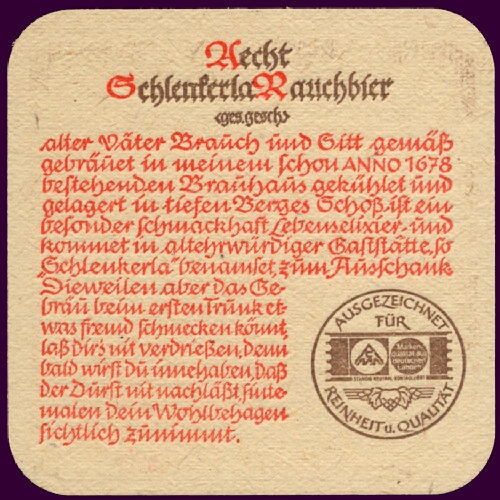 Aecht
Schlenkerla Rauchbier
‹ges.gesch›
alter Väter Brauch und Sitt gemäß
gebräuet in meinem schon ANNO 1678
bestehenden Brauhaus gekühlet und
gelagert in tiefen Berges Schoß ist ein
besonder schmackhaft Lebenselixier und
kommet in altehrwürdiger Gaststätte, so
„Schlenkerla" benamset, zum Ausschank
Dieweilen aber das Ge-
bräu beim ersten Trunk et-
was fremd schmecken könnt,
laß Dir's nit verdrießen, denn
bald wirst Du innehaben, daß
der Durst nit nachläßt, sinte-
malen Dein Wohlbehagen
sichtlich zunimmt.
AUSGEZEICHNET
FÜR
CMA
Marken-
qualität aus
deutschen
Landen
STÄNDIG NEUTRAL KONTROLLIERT
REINHEIT u. QUALITÄT